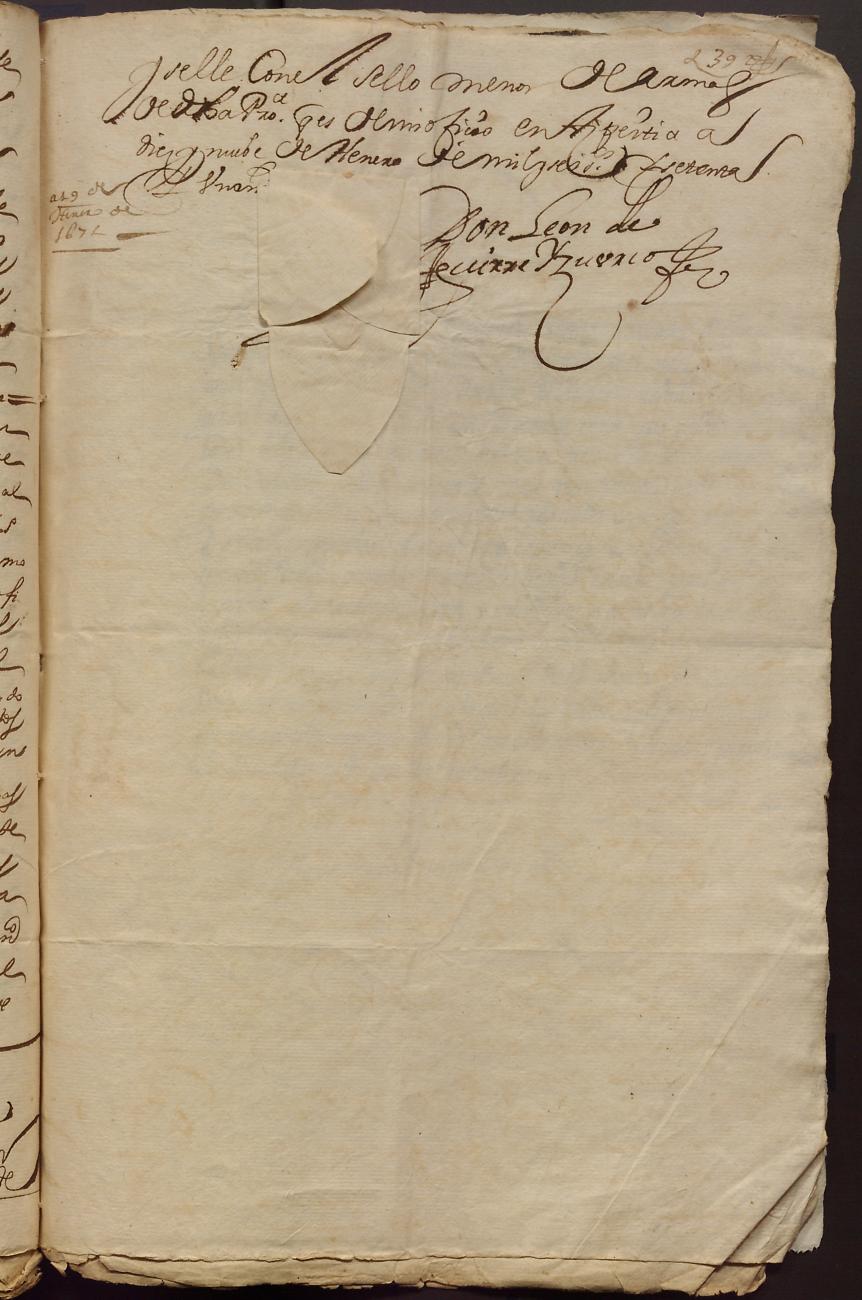 239
y selle Con el sello menor de armas
de dha Proª. q es de mi ofiçio en Azpeitia a
diez y nuebe de Henero de mil y seis os y setenta
y Vn an
a 19 de
Henero de
1671
Don Leon de
Aguirre Yzurrio